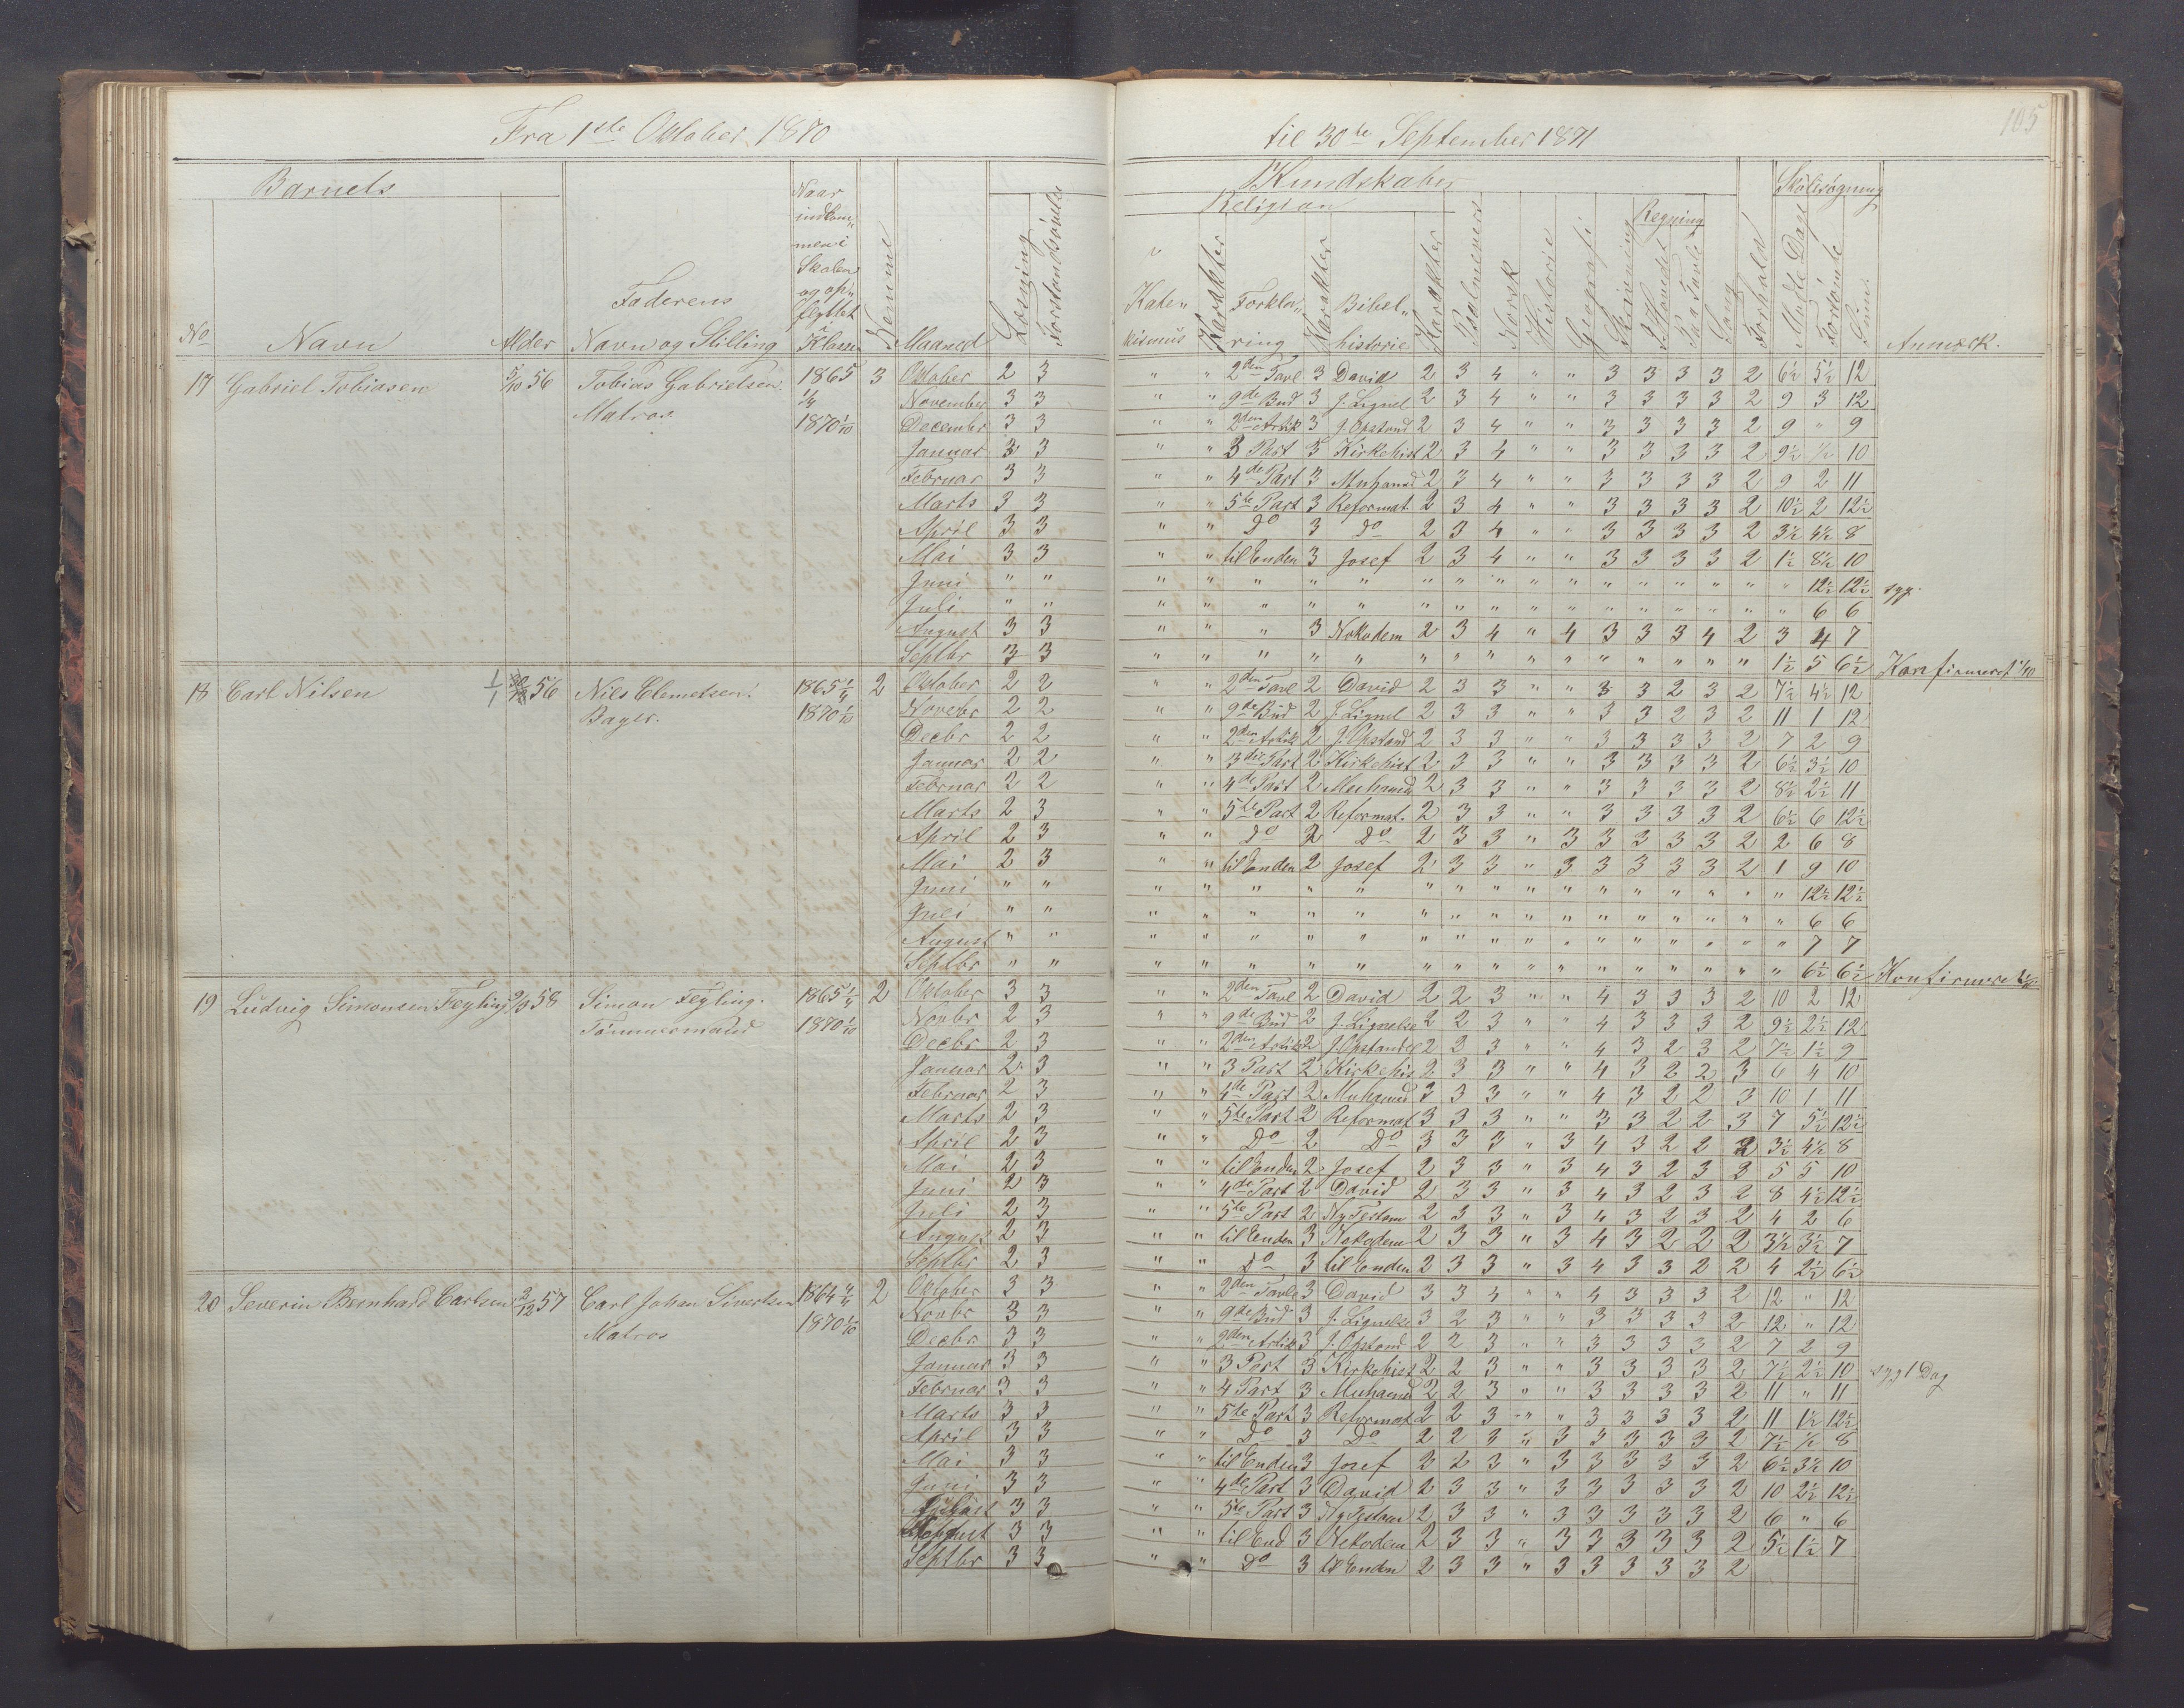 Fra 1ste Oktober 1870 til 30te September 1871
105
Barnets
Kundskaber
Skolesøgning
Religion
Regning
No Navn Alder Faderens Navn og Stilling Naar indkommen i Skolen og opflyttet i Klassen Nemme Maaned Læsning Forstandsøvelse Katekismus Karakter Forklaring Karakter Bibelhistorie Karakter Psalmevers Norsk Historie Geografi Skrivning I Hovedet Paa Tavle Sang Forhold Mødte Dage Forsømte Sum Anmærk.
17 Gabriel Tobiasen 5/10 56 Tobias Gabrielsen 1865 3 Oktober 2 3 " " 2den Tavl 3 David 2 3 4 " " 3 3 3 3 2 6½ 5½ 12
Matros 1/4 November 3 3 " " 9de Bud 3 J. Lignel 2 3 4 " " 3 3 3 3 2 9 3 12
1870 1/10 Decembr 3 3 " " 2den Artik 3 J. Opstand 2 3 4 " " 3 3 3 3 2 9 " 9
Januar 3 3 " " 3 Part 3 Kirkehist 2 3 4 " " 3 3 3 3 2 9½ ½ 10
Februar 3 3 " " 4de Part 3 Muhamed 2 3 4 " " 3 3 3 3 2 9 2 11
Marts 3 3 " " 5te Part 3 Reformat. 2 3 4 " " 3 3 3 3 2 10½ 2 12½
April 3 3 " " Do 3 Do 2 3 4 " " 3 3 3 3 2 3½ 4½ 8
Mai 3 3 " " til Enden 3 Josef 2 3 4 " " 3 3 3 3 2 1½ 8½ 10
Juni " " " " " " " " " " " " " " " " " " 12½ 12½ syg.
Juli " " " " " " " " " " " " " " " " " " 6 6
August 3 3 " " " 3 Nekodem 2 3 4 " 4 3 3 3 4 2 3 4 7
Septbr 3 3 " " " " " " " " " " " " " " 1½ 5 6½ Konfirmeret 1/10
18 Carl Nilsen 1/1 56 Niels Clemetsen. 1865 1/4 2 Oktober 2 2 " " 2den Tavl 2 David 2 3 3 " " 3 3 2 3 2 7½ 4½ 12
Bager. 1870 1/10 Novebr 2 2 " " 9de Bud 2 J. Lignel 2 3 3 " " 3 3 2 3 2 11 1 12
Decbr 2 2 " " 2den Artik 2 J. Opstand 2 3 3 " " 3 3 3 3 2 7 2 9
Januar 2 2 " " 3die Part 2 Kirkehist 2 3 3 " " 3 3 3 3 2 6½ 3½ 10
Februar 2 2 " " 4de Part 2 Muhamed 2 3 3 " " 3 3 3 3 2 8½ 2½ 11
Marts 2 3 " " 5te Part 2 Reformat. 2 3 3 " " 3 3 3 3 2 6½ 6 12½
April 2 3 " " Do 2 Do 2 3 3 " 3 3 3 3 3 2 2 6 8
Mai 2 3 " " til Enden 2 Josef 2 3 3 " 3 3 3 3 3 2 1 9 10
Juni " " " " " " " " " " " " " " " " " " 12½ 12½
Juli " " " " " " " " " " " " " " " " " " 6 6
August " " " " " " " " " " " " " " " " " " 7 7
Septbr " " " " " " " " " " " " " " " " " " 6½ 6½ Konfirmeret 1/10
19 Ludvig Simonsen Feyling 58 Simon Feyling. 1865 1/4 2 Oktober 3 3 " " 2den Tavl 2 David 2 2 3 " " 4 3 3 3 2 10 2 12
Tømmermand 1870 1/10 Novbr 2 3 " " 9de Bud 2 J. Lignelse 2 2 3 " " 4 3 3 3 2 9½ 2½ 12
Decbr 2 3 " " 2den Artik 2 J. Opstandel 2 2 3 " " 4 3 2 3 2 7½ 1½ 9
Januar 2 3 " " 3 Part 2 Kirkehis. 2 3 3 " " 4 3 2 2 3 6 4 10
Februar 2 3 " " 4de Part 2 Muhamed 3 3 3 " " 4 3 2 2 3 10 1 11
Marts 2 3 " " 5te Part 2 Reformat 3 3 3 " " 3 3 2 2 3 7 5½ 12½
April 2 3 " " Do 2 Do 3 3 3 " 3 4 3 2 2 2 3½ 4½ 8
Mai 2 3 " " til Enden 2 Josef 2 3 3 " 3 4 3 2 3 2 5 5 10
Juni 2 3 " " 4de Part 2 David 2 3 3 " 3 4 3 2 3 2 8 4½ 12½
Juli 2 3 " " 5te Part 2 Ny Testam 2 3 3 " 3 4 3 2 3 2 4 2 6
August 2 3 " " til Enden 3 Nekodem 2 3 3 " 3 4 3 2 2 2 3½ 3½ 7
Septbr 2 3 " " Do 3 til Enden 2 3 3 " 3 4 3 3 2 2 4 2½ 6½
20 Severin Bernhard Carlsen 2/12 57 Carl Johan Sivertsen 1864 2 Oktober 3 3 " " 2den Tavle 3 David 3 3 4 " " 4 3 3 3 2 12 " 12
Matros 1870 1/10 Novbr 3 3 " " 9de Bud 3 J. Lignelse 3 2 3 " " 3 3 3 3 2 12 " 12
Decbr 3 3 " " 2den Artik 3 J. Opstand 2 2 3 " " 3 3 3 3 2 7 2 9
Januar 3 3 " " 3 Part 3 Kirkehist 2 2 3 " " 3 3 3 3 2 7½ 2½ 10 syg 1 Dag
Februar 3 3 " " 4 Part 3 Muhamed 2 2 3 " " 3 3 3 3 2 11 " 11
Marts 3 3 " " 5te Part 3 Reformat 2 2 3 " " 3 3 3 3 2 11 1½ 12½
April 3 3 " " Do 3 Do 2 2 3 " 3 3 3 3 3 2 7½ ½ 8
Mai 3 3 " " til Enden 3 Josef 3 2 3 " 3 3 3 3 3 2 6½ 3½ 10
Juni 3 3 " " 4de Part 3 David 2 3 3 " 3 3 3 3 3 2 10 2½ 12½
3 3 " " 5te Part 3 Ny Testam 2 3 3 " 3 3 3 3 3 2 6 " 6
3 3 " " til End 3 Nekodem 2 3 3 " 3 3 3 3 3 2 5½ 1½ 7
Septbr 3 3 " " Do 3 til Enden 2 3 3 " 3 3 3 3 3 2